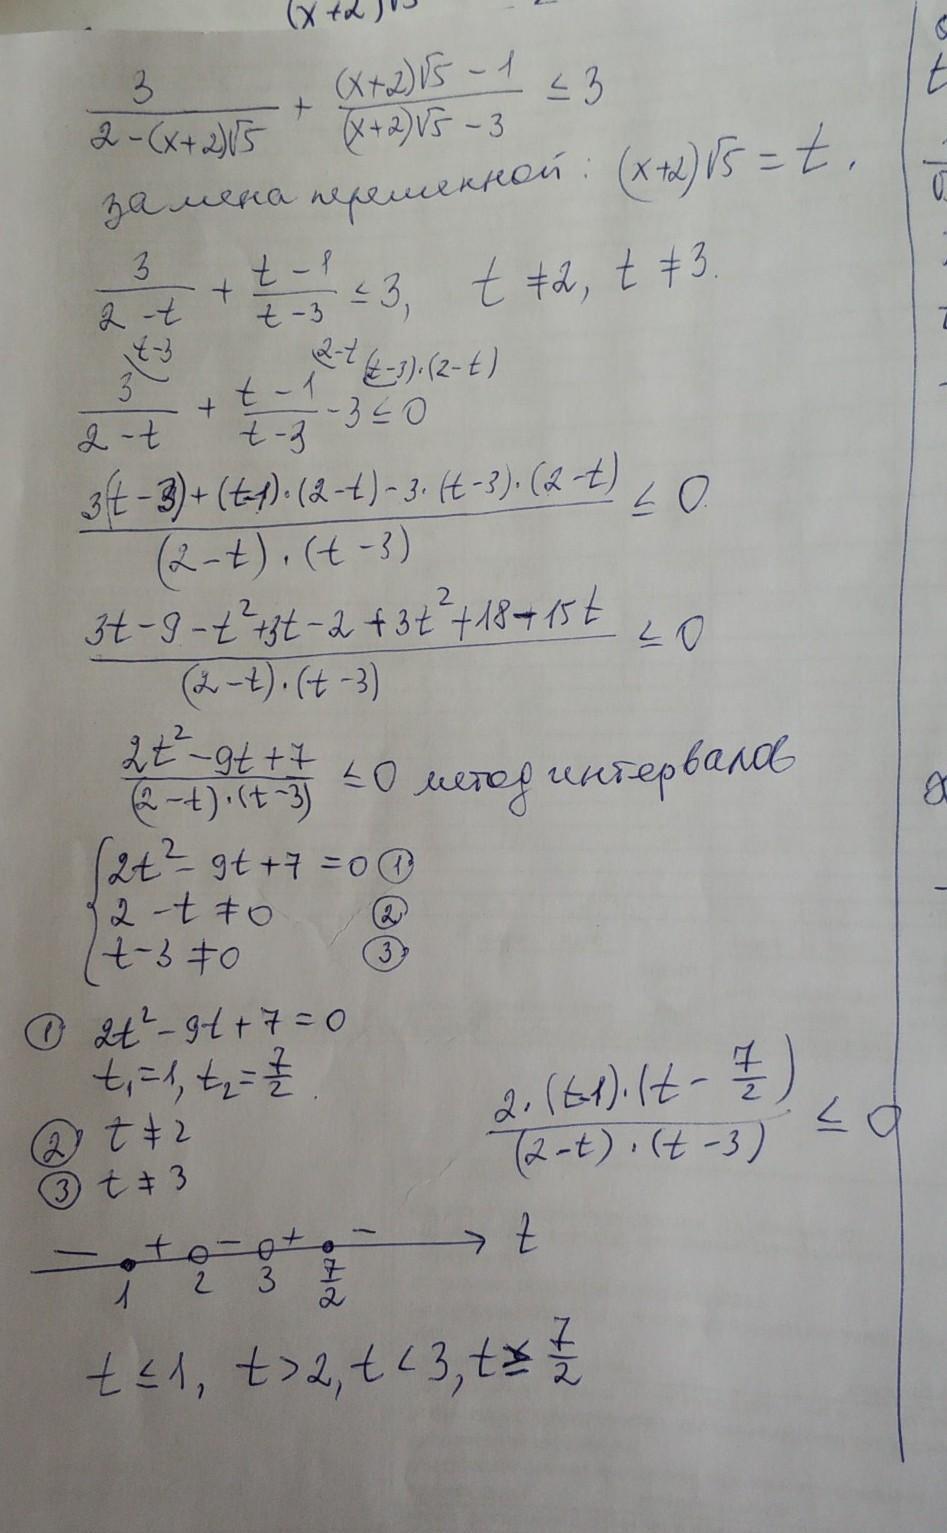 (x+2)√5
3/(2-(x+2)√5) + ((x+2)√5-1)/((x+2)√5-3) ≤ 3
замена переменной: (x+2)√5 = t.
3/(2-t) + (t-1)/(t-3) ≤ 3, t ≠ 2, t ≠ 3.
t-3 2-t (t-3)·(2-t)
3/(2-t) + (t-1)/(t-3) - 3 ≤ 0
(3(t-3)+(t-1)·(2-t)-3·(t-3)·(2-t))/((2-t)·(t-3)) ≤ 0
(3t-9-t²+3t-2+3t²+18-15t)/((2-t)·(t-3)) ≤ 0
(2t²-9t+7)/((2-t)·(t-3)) ≤ 0 метод интервалов
{2t²-9t+7=0 ①
2-t ≠ 0 ②
t-3 ≠ 0 ③
① 2t²-9t+7=0
t₁=1, t₂=7/2.
② t ≠ 2
③ t ≠ 3
(2·(t-1)·(t-7/2))/((2-t)·(t-3)) ≤ 0
- + - + - t
1 2 3 7/2
t ≤ 1, t > 2, t < 3, t ≥ 7/2